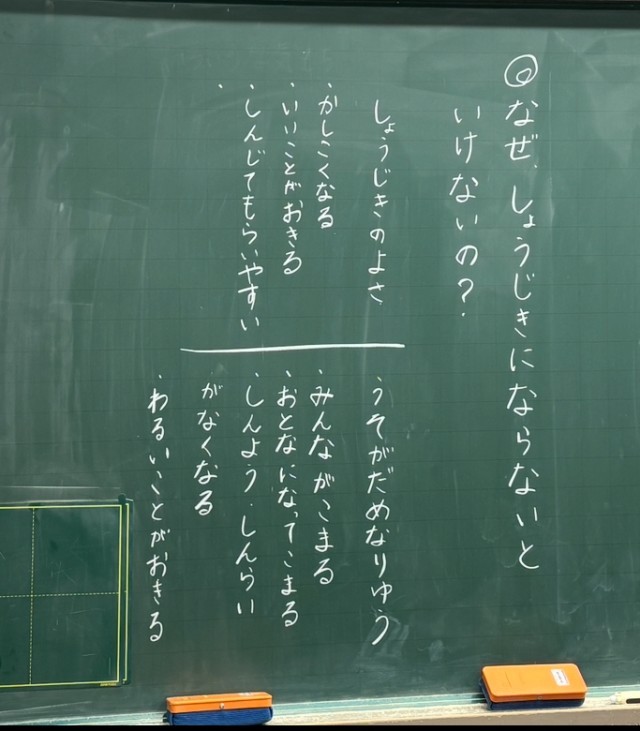 ◎なぜ、しょうじきにならないと
いけないの?
しょうじきのよさ
・かしこくなる
・いいことがおきる
・しんじてもらいやすい
・
うそがだめなりゆう
・みんながこまる
・おとなになってこまる
・しんよう・しんらい
がなくなる
・わるいことがおきる